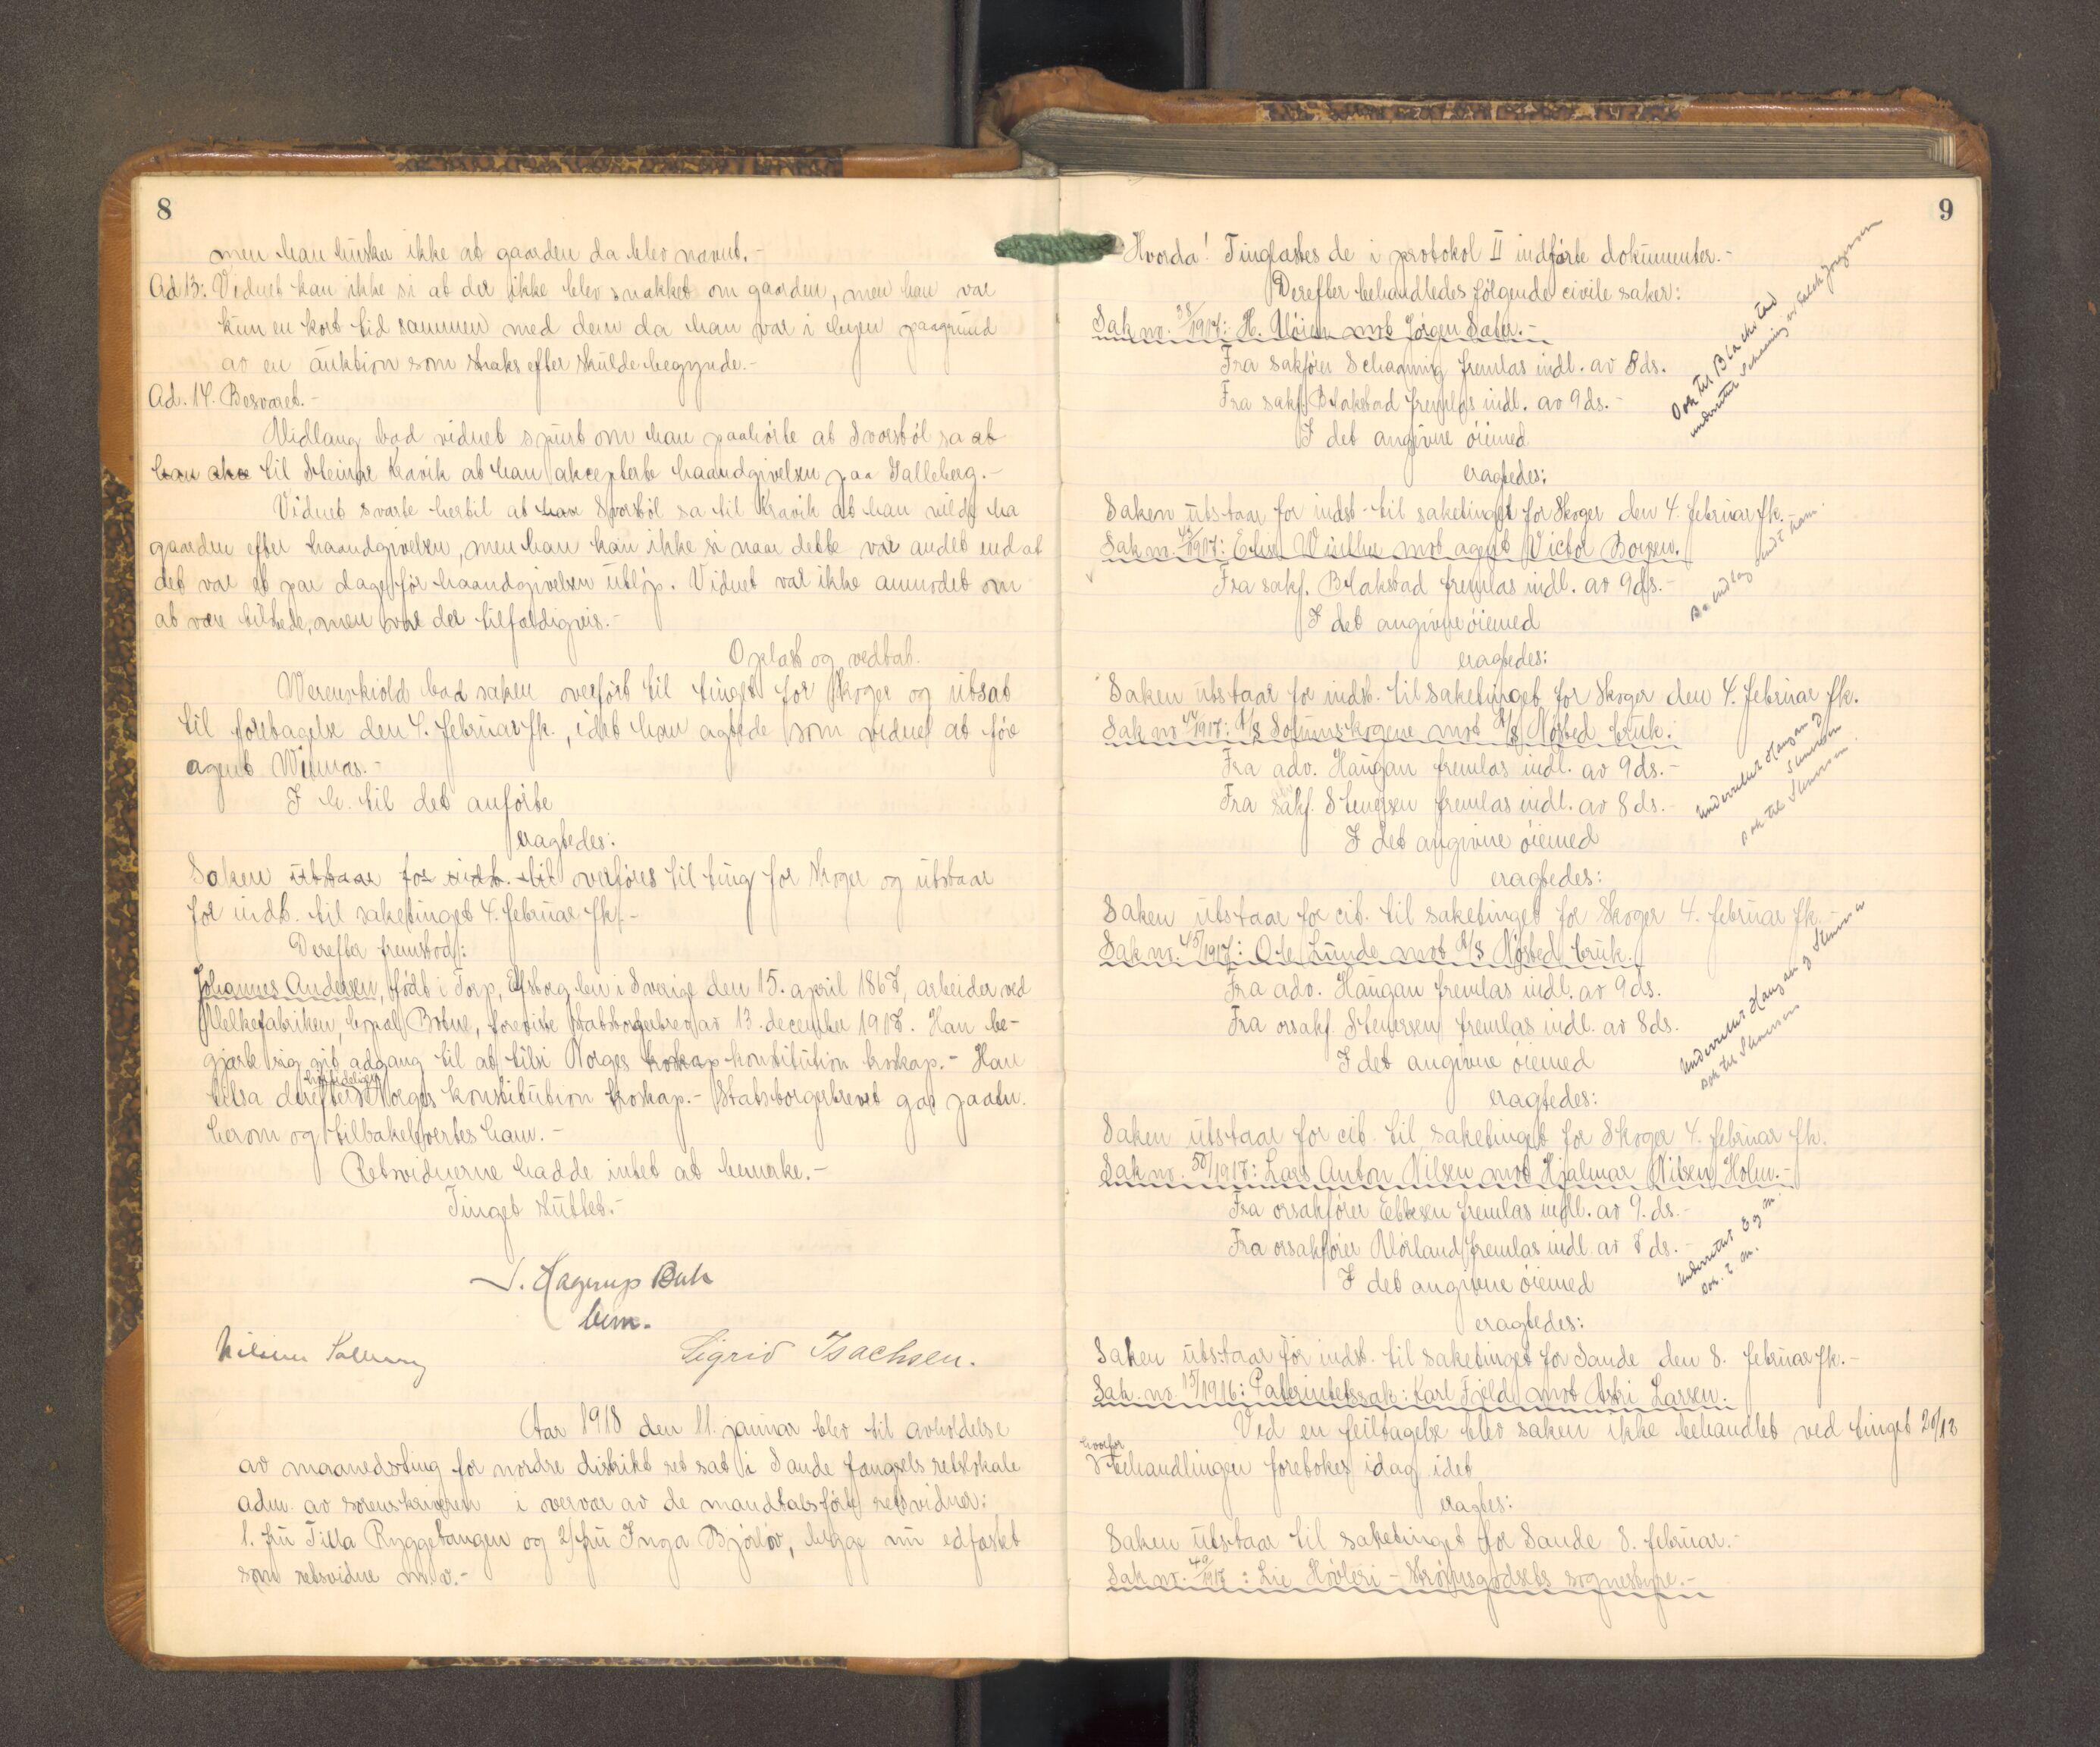 8
men han husker ikke at gaarden da blev nævnt.-
Ad 13: Vidnet kan ikke si at der ikke blev snakket om gaarden, men han var
kun en kort tid sammen med dem da han var i byen paagrund
av en auktion som straks efter skulde begynde.-
Ad. 14. Besvaret.-
Vidlang bad vidnet spurt om han paahørte at Svorstøl sa at
han akce til Steinar Kravik at han akcepterte haandgivelsen paa Salleberg.-
Vidnet svarte hertil at han Svorstøl sa til Kravik at han vilde ha
gaarden efter haandgivelsen, men han kan ikke si naar dette var andet end at
det var et par dage før haandgivelsen utløp. Vidnet var ikke anmodet om
at være tilstede, men var der tilfældigvis.-
Oplæst og vedtat.
Werenskiold bad saken overført til tinget for Skoger og utsat
til foretagelse den 4. februar fk., idet han agtede som vidne at føre
agent
I h. til det anførte
eragtedes:
Saken utstaar for indst. til overføres til ting for Skoger og utstaar
for indst. til saketinget 4. februar fk.-
Derefter fremstod:
Johannes Andersen, født i Torp, Elfsborg len i Sverige den 15. april 1867, arbeider ved
Melkefabriken, bopæl Botne, foreviste statsborgerbrev av 13. december 1917. Han be-
gjærte sig git adgang til at tilsi Norges troskap konstitution troskap.- Han
høitideligen
tilsa derefter Norges konstitution troskap.- Statsborgerbrevet gas paatn.
herom og tilbakeleveres ham.-
Retsvidnerne hadde intet at bemerke.-
Tinget sluttet.-
J. Hagerup Bull
bem.
Sigrid Isachsen.
Aar 1918 den 11. januar blev til avholdelse
av maanedsting for nordre distrikt ret sat i Sande fængsels retslokale
adm. av sorenskriveren i overvær av de mandtalsførte retsvidner:
1. fru Tilla Ryggetangen og 2) fru Inga Bjørløv, begge nu edfæstet
som retsvidne m.v.-
9
Hvorda! Tinglæstes de i protokol II indførte dokumenter.-
Derefter behandledes følgende civile saker:
Sak no. 38/1917: H. Møien mot Jørgen Sater.-
Fra sakfører Schanning fremlas indl. av 8 ds.
Fra sakf. Blakstad fremlas indl. av 9 ds.-
I det angivne øiemed
eragtedes:
Saken utstaar for indst. til saketinget for Skoger den 4. februar fk.-
Sak nr. /1917: Elise Müller mot agent Victor Borgen.
Fra sakf. Blakstad fremlas indl. av 9 ds.-
I det angivne øiemed
eragtedes:
Saken utstaar for indst. til saketinget for Skoger den 4. februar fk.
Sak no /1917: A/S Solumskogene mot A/S Nøsted bruk:
Fra adv. Haugan fremlas indl. av 9 ds.-
Fra sakf. Stenersen fremlas indl. av 8 ds.-
I det angivne øiemed
eragtedes:
Saken utstaar for cit. til saketinget for Skoger 4. februar fk.-
Sak nr. 45/1917: Ole Lunde mot A/S Nøsted bruk.
Fra adv. Haugan fremlas indl. av 9 ds.
Fra orsakf. Stenersen fremlas indl. av 8 ds.
I det angivne øiemed
eragtedes:
Saken utstaar for cit. til saketinget for Skoger 4. februar fk.
Sak no. 50/1917: Lars Anton Nilsen mot Hjalmar Nilsen Holm.-
Fra orsakfører Ebbesen fremlas indl. av 9. ds.-
Fra orsakfører Mørland fremlas indl. av 8 ds.-
I det angivne øiemed
eragtedes:
Saken utstaar for indst. til saketinget for Sande den 8. februar fk.-
Sak. no. 15/1916: Paternitetssak: Karl Fjeld mot Astri Larsen.
Ved en feiltagelse blev saken ikke behandlet ved tinget 20/12
hvorfor
behandlingen foretokes idag idet
eragtes:
Saken utstaar til saketinget for Sande 8. februar.-
Sak nr. 40/1917: Lie Høvleri - Strømsgodsets sognestyre.-